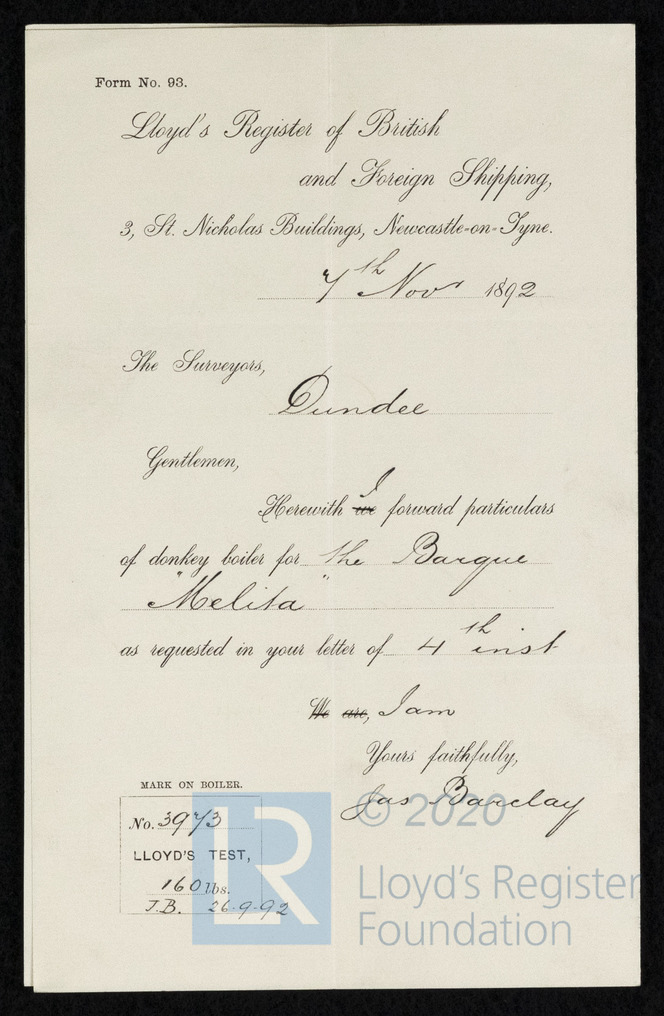 Form No. 93.
Lloyd's Register of British
and Foreign Shipping,
3, St. Nicholas Buildings, Newcastle-on-Tyne.
7th Novr 1892
The Surveyors,
Dundee
Gentlemen,
Herewith we I forward particulars
of donkey boiler for the Barque
"Melita"
as requested in your letter of 4th inst
We are, I am
Yours faithfully,
Jas Barclay
MARK ON BOILER.
No. 3973
LLOYD'S TEST,
160 lbs.
J.B. 26-9-92
LR
© 2020
Lloyd's Register
Foundation